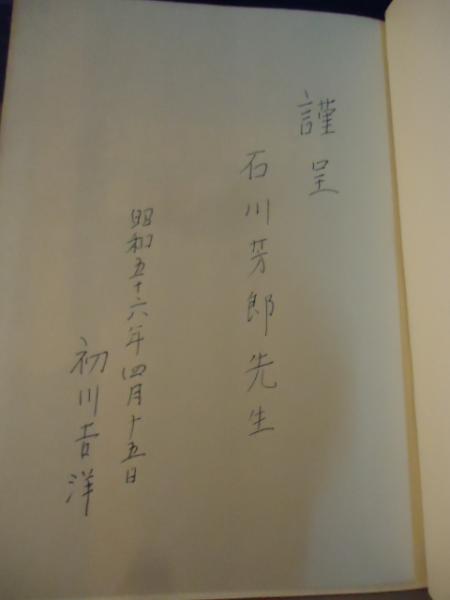 謹呈
石川芳郎先生
昭和五十六年四月十五日
初川吉洋